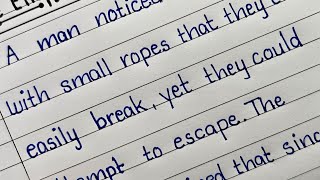 A man noticed
with small ropes that they c
easily break, yet they could
to escape. The
that sinc